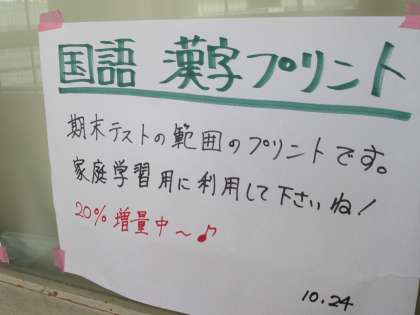 国語 漢字プリント
期末テストの範囲のプリントです。
家庭学習用に利用して下さいね!
20%増量中〜♪
10.24